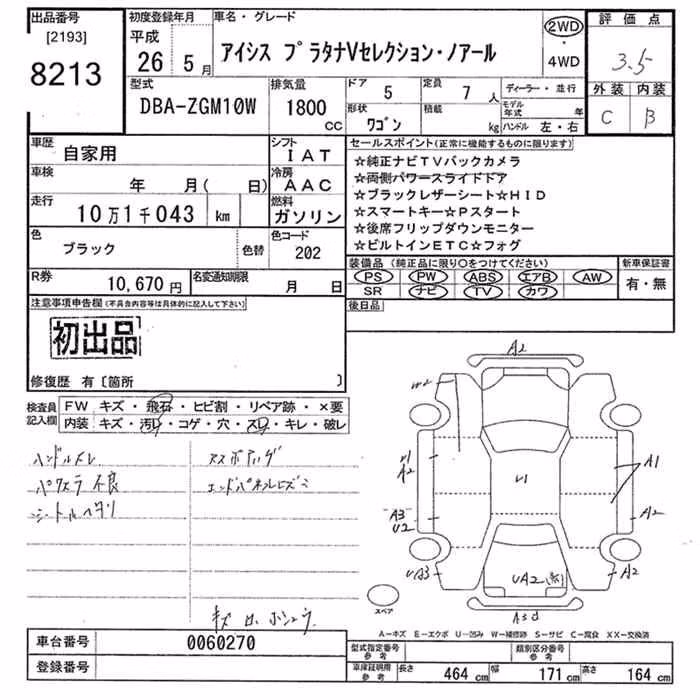 出品番号
[2193]
8213
初度登録年月
平成
26 5月
車名・グレード
アイシス プラタナVセレクション・ノアール
2WD
・
4WD
評価点
3.5
外装 内装
C B
型式
DBA-ZGM10W
排気量
1800
CC
ドア
5
定員
7人
ディーラー・並行
モデル年式 年
形状
ワゴン
積載
kg
ハンドル 左・右
車歴
自家用
シフト
IAT
車検
年 月( 日)
冷房
AAC
走行
10万1千043 km
燃料
ガソリン
色
ブラック
色替
色コード
202
R券
10,670円
名変通知期限
月 日
セールスポイント(正常に機能するものに限ります)
☆純正ナビTVバックカメラ
☆両側パワースライドドア
☆ブラックレザーシート☆HID
☆スマートキー☆Pスタート
☆後席フリップダウンモニター
☆ビルトインETC☆フォグ
装備品(純正品に限り○をつけてください)
PS PW ABS エアB AW
SR ナビ TV カワ
新車保証書
有・無
後日品
注意事項申告欄(不具合内容等は具体的に記入して下さい)
初出品
修復歴 有〔箇所 〕
検査員記入欄
FW キズ・飛石・ヒビ割・リペア跡・×要
内装 キズ・汚れ・コゲ・穴・スレ・キレ・破レ
ハンドルスレ
パワスラ不良
シートルヘタリ
A2
W2
U1
A2
U1
A1
A3
U2
A2
UA3
UA2
A2
スペア
A-キズ E-エクボ U-凹み W-補修跡 S-サビ C-腐食 XX-交換済
車台番号
0060270
登録番号
型式指定番号
参考
類別区分番号
参考
車庫証明用
参考
長さ 464 cm 幅 171 cm 高さ 164 cm